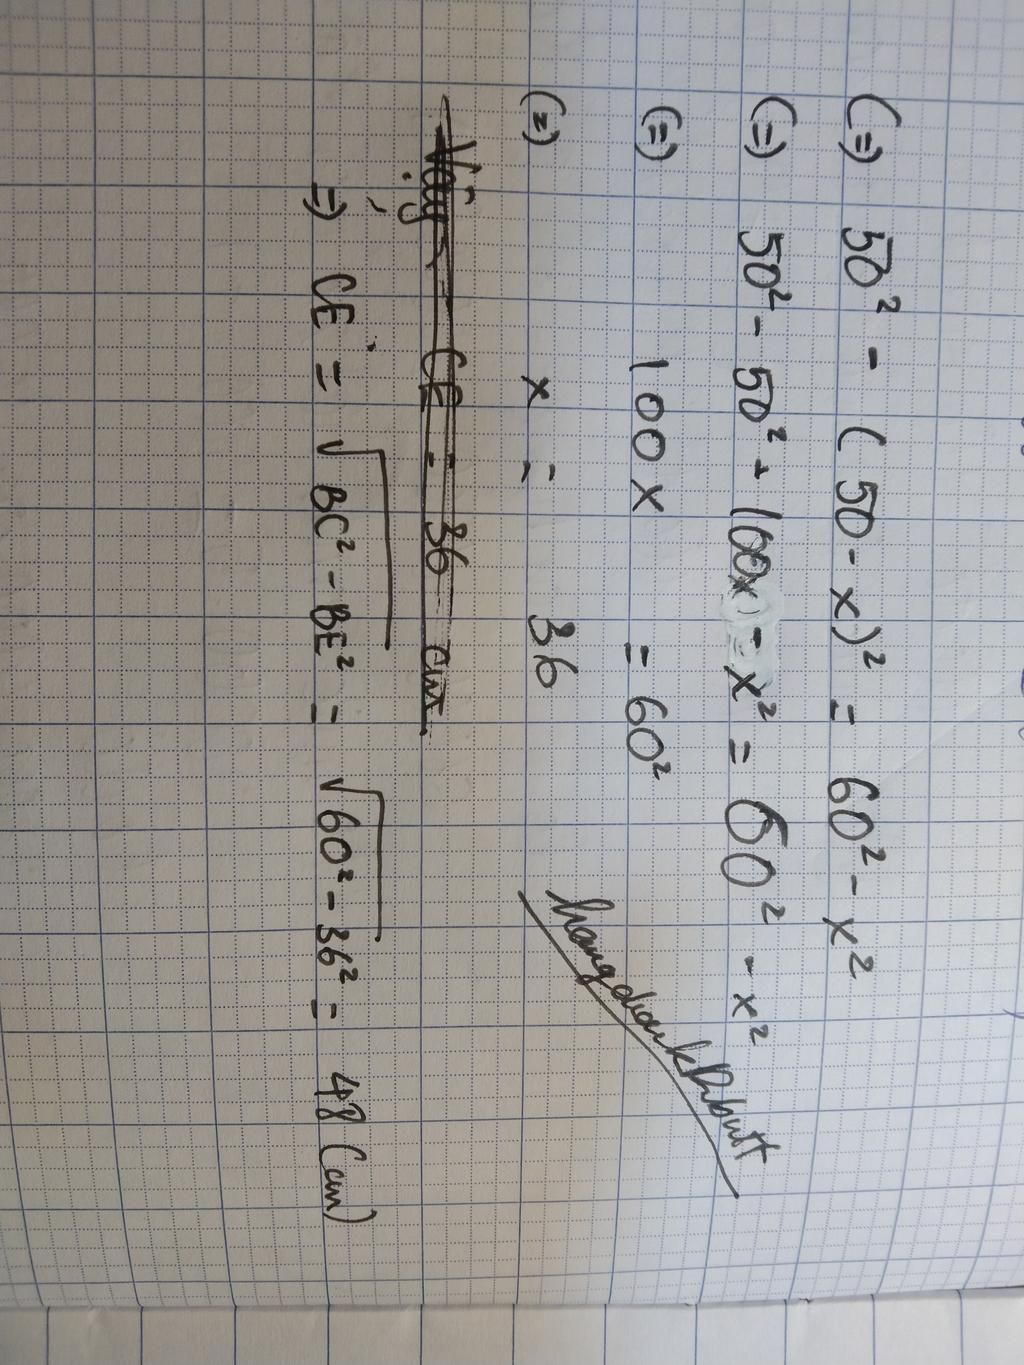 (=) 50² - (50 - x)² = 60² - x²
(=) 50² - 50² + 100x - x² = 60² - x²
(=) 100x = 60²
(=) x = 36
Vậy CE = 36 cm
=) CE = √BC² - BE² = √60² - 36² = 48 (cm)